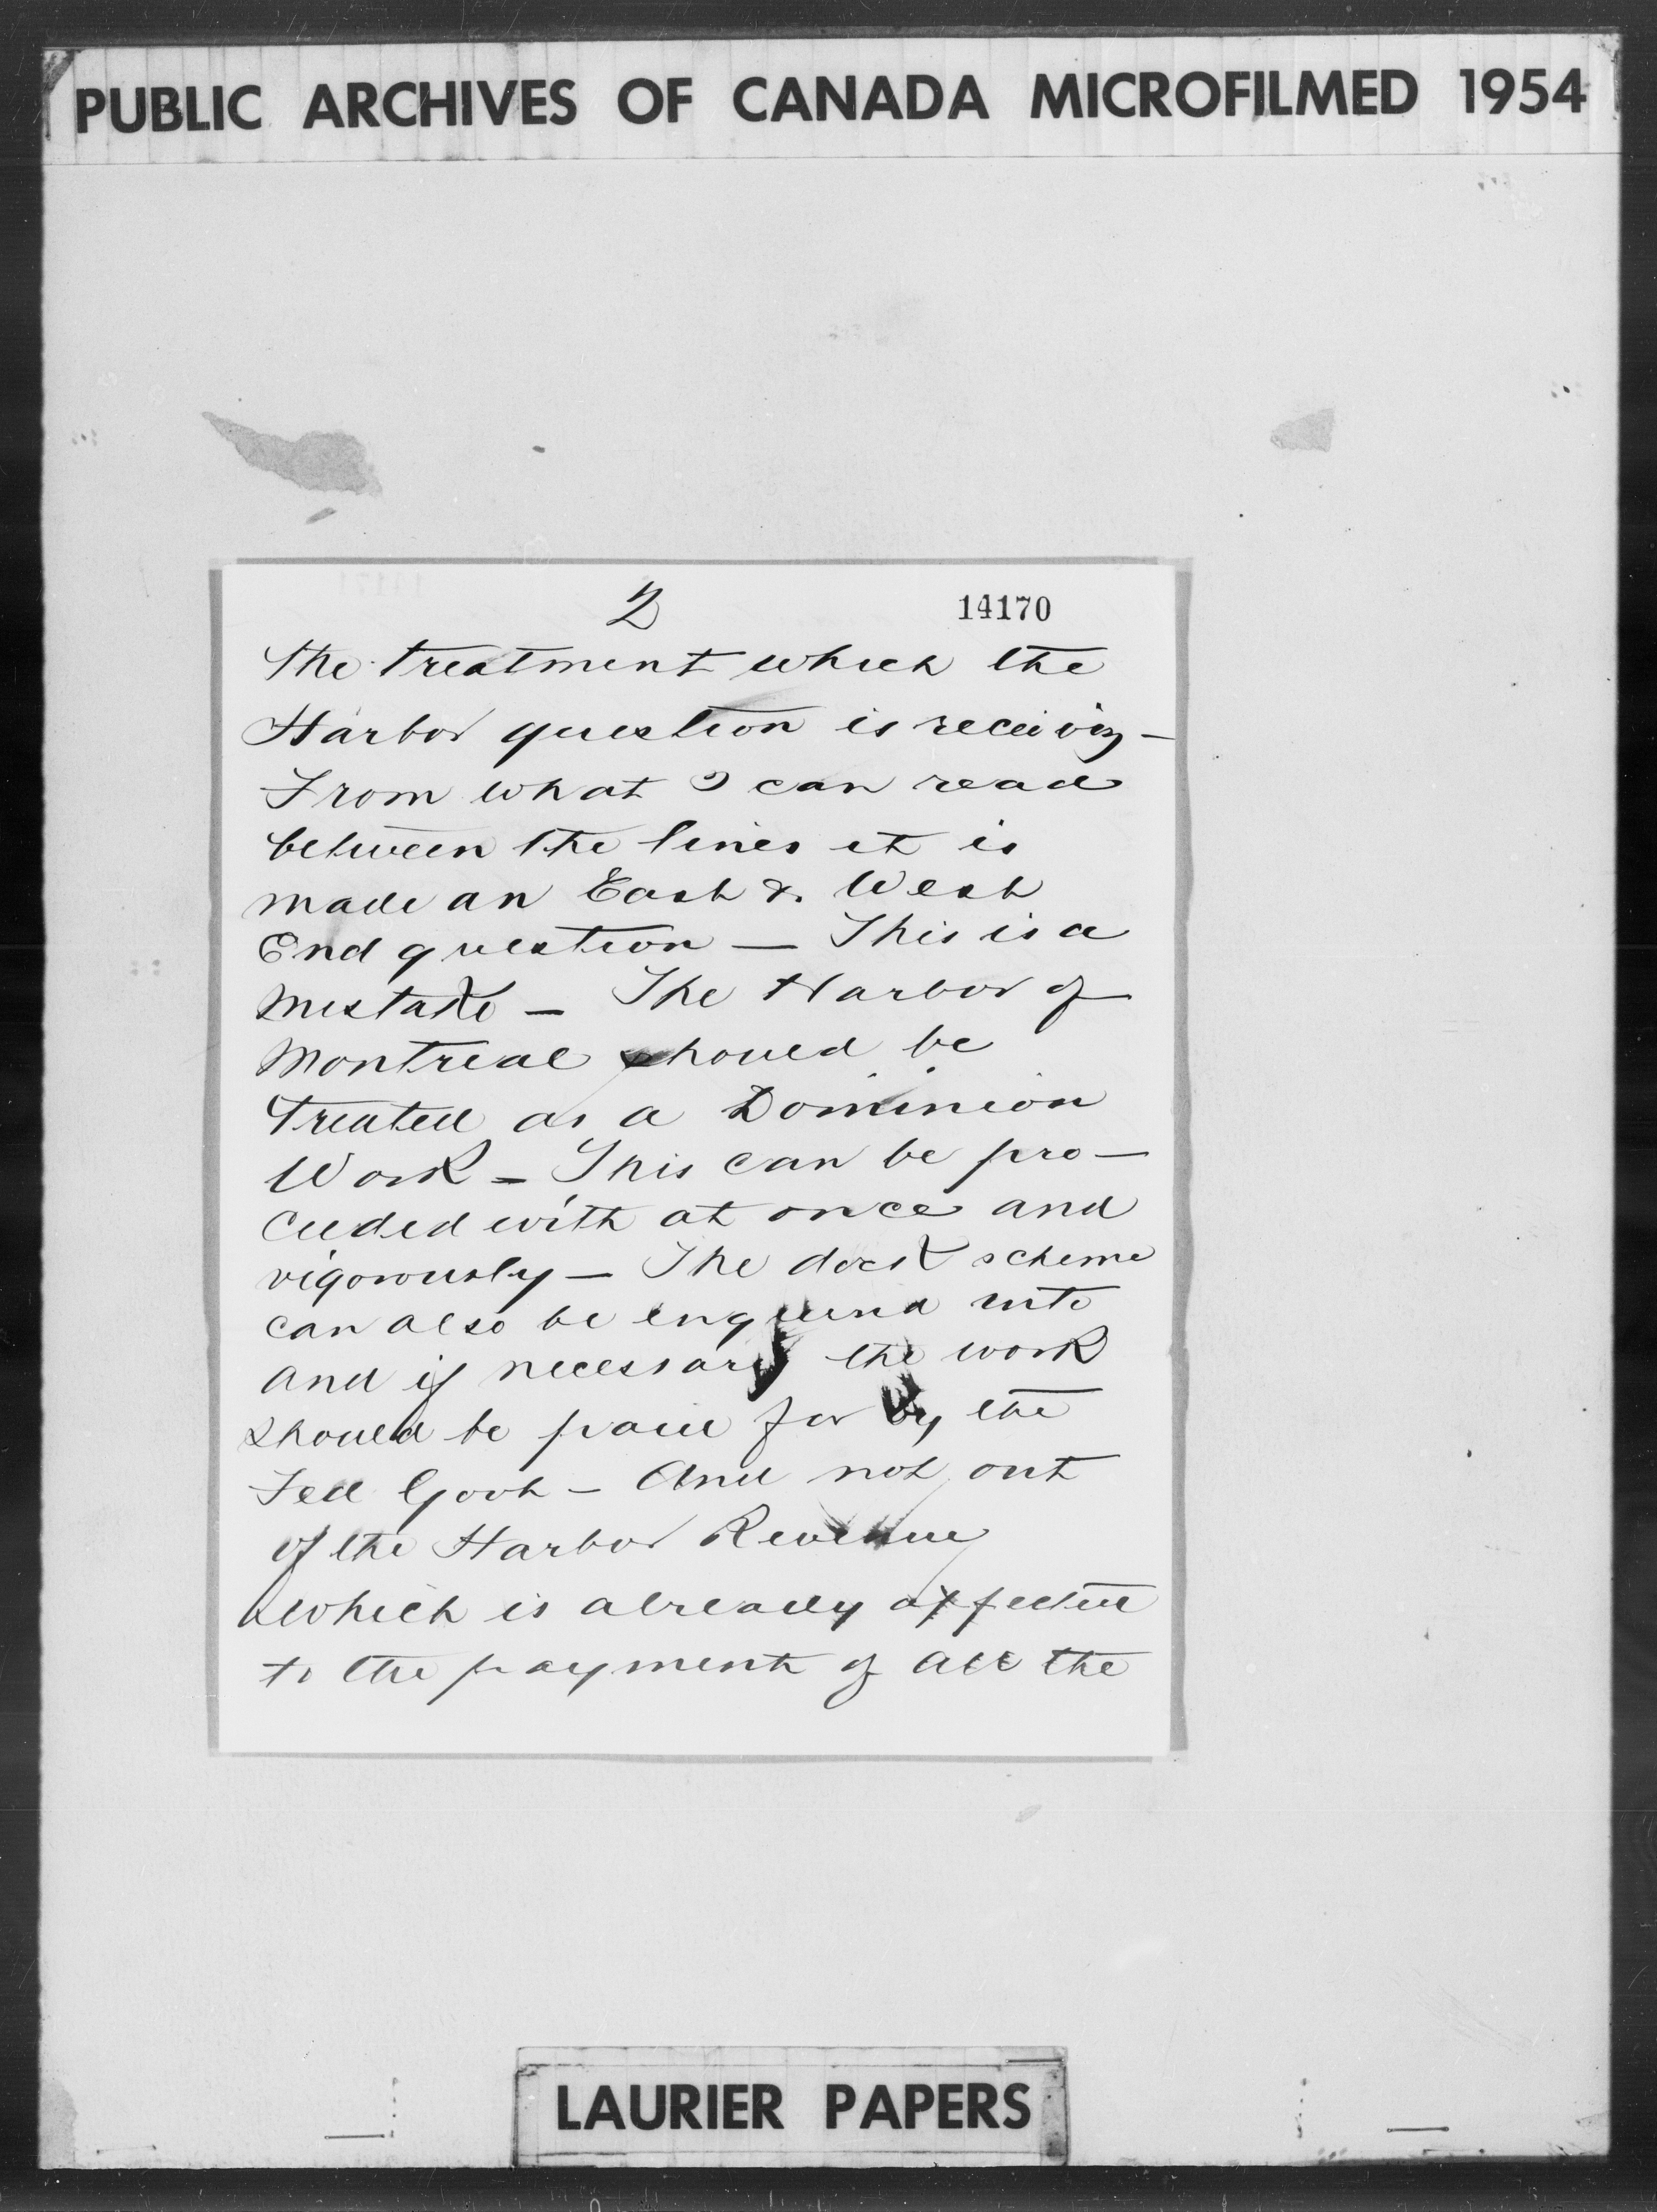 PUBLIC ARCHIVES OF CANADA MICROFILMED 1954
2
14170
The treatment which the
Harbor question is receiving –
From what I can read
between the lines it is
made an East & West
End question – This is a
mistake – The Harbor of
Montreal should be
treated as a Dominion
Work – This can be pro –
ceeded with at once and
vigorously – The dock scheme
can also be enquired into
and if necessary the work
should be paid for by the
Fed Govt – And not out
of the Harbor Revenue
which is already affected
to the payment of all the
LAURIER PAPERS